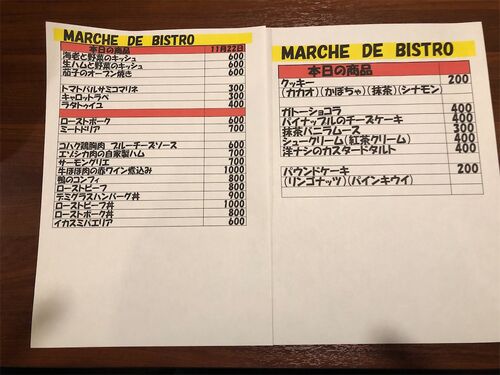 MARCHE DE BISTRO
本日の商品 11月22日
海老と野菜のキッシュ 600
生ハムと野菜のキッシュ 600
茄子のオーブン焼き 600
トマトバルサミコマリネ 300
キャロットラペ 300
ラタトゥイユ 400
ローストポーク 600
ミートドリア 700
コハク鶏胸肉 ブルーチーズソース 600
エゾシカ肉の自家製ハム 700
サーモングリエ 700
牛ほほ肉の赤ワイン煮込み 1000
鴨のコンフィ 800
ローストビーフ 800
デミグラスハンバーグ丼 900
ローストビーフ丼 1000
ローストポーク丼 800
イカスミパエリア 600
MARCHE DE BISTRO
本日の商品
クッキー 200
(カカオ)(かぼちゃ)(抹茶)(シナモン)
ガトーショコラ 400
パイナップルのチーズケーキ 400
抹茶バニラムース 300
シュークリーム(紅茶クリーム) 400
洋ナシのカスタードタルト 400
パウンドケーキ 200
(リンゴナッツ)(パインキウイ)